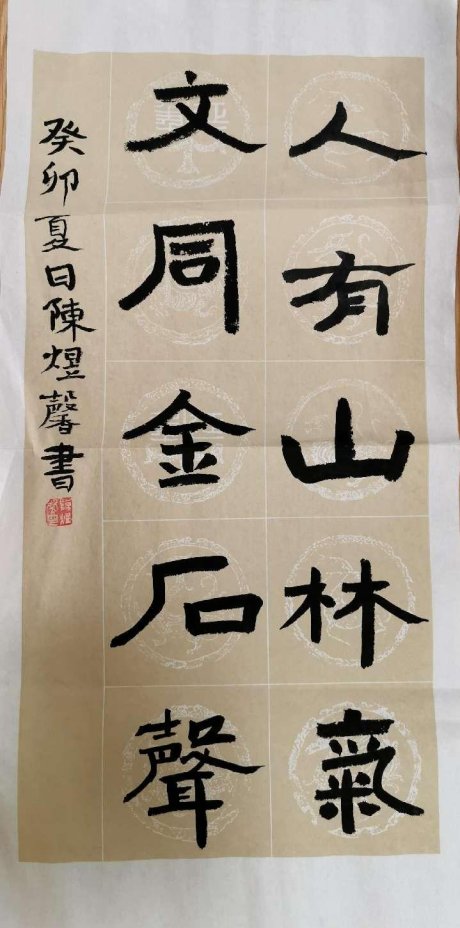 人有山林氣
文同金石聲
癸卯夏日陳煜馨書